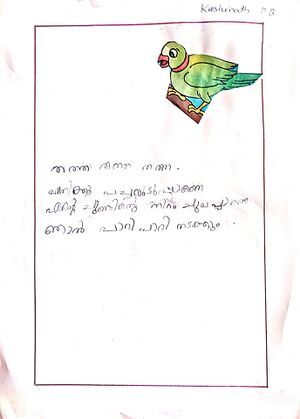 Kashinath P B
തത്ത തത്ത തത്ത .
എനിക്കു പച്ചയുടുപ്പാണെ
എന്റെ ചുണ്ടിന്റെ നിറം ചുവപ്പാണെ
ഞാൻ പാറി പാറി നടക്കും .